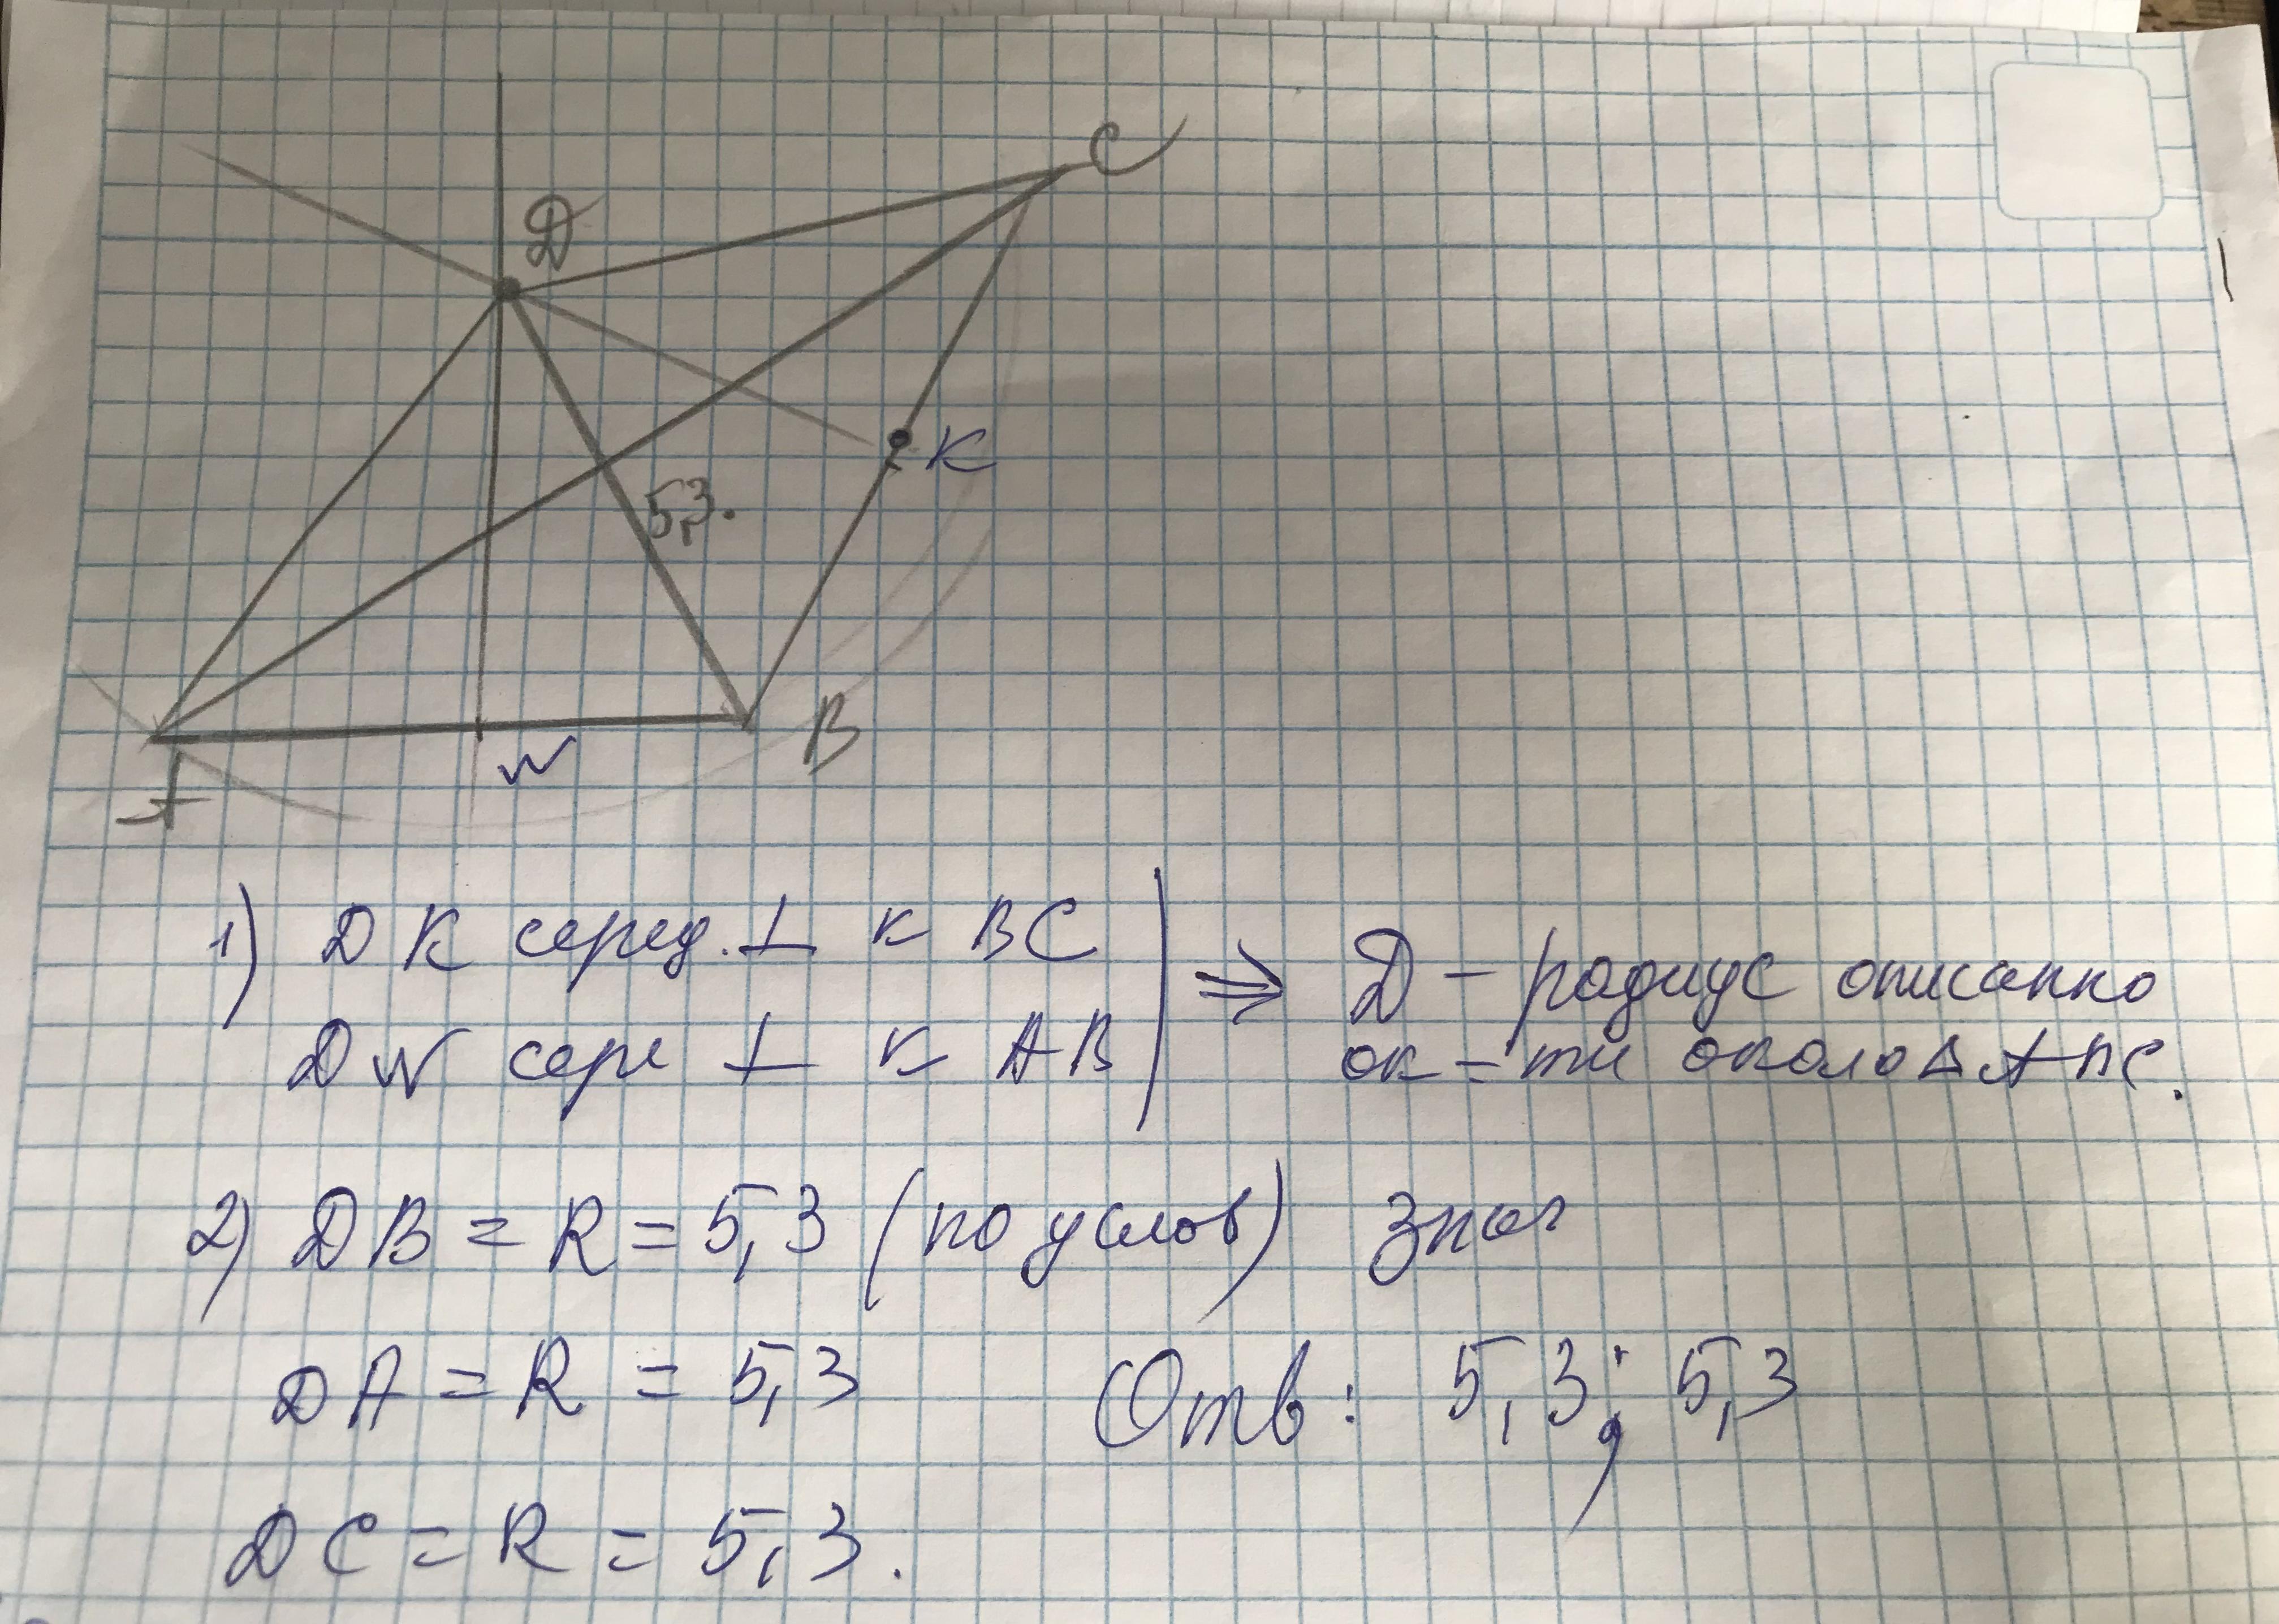 Д
C
5,3.
К
A
B
N
1) DК серед. ⊥ к BC
DN сере ⊥ к AB
⇒ Д - радиус описанно
ок-ти около Δ ABC.
2) DB = R = 5,3 (по услов) знач
DA = R = 5,3
Отв: 5,3; 5,3
DC = R = 5,3.